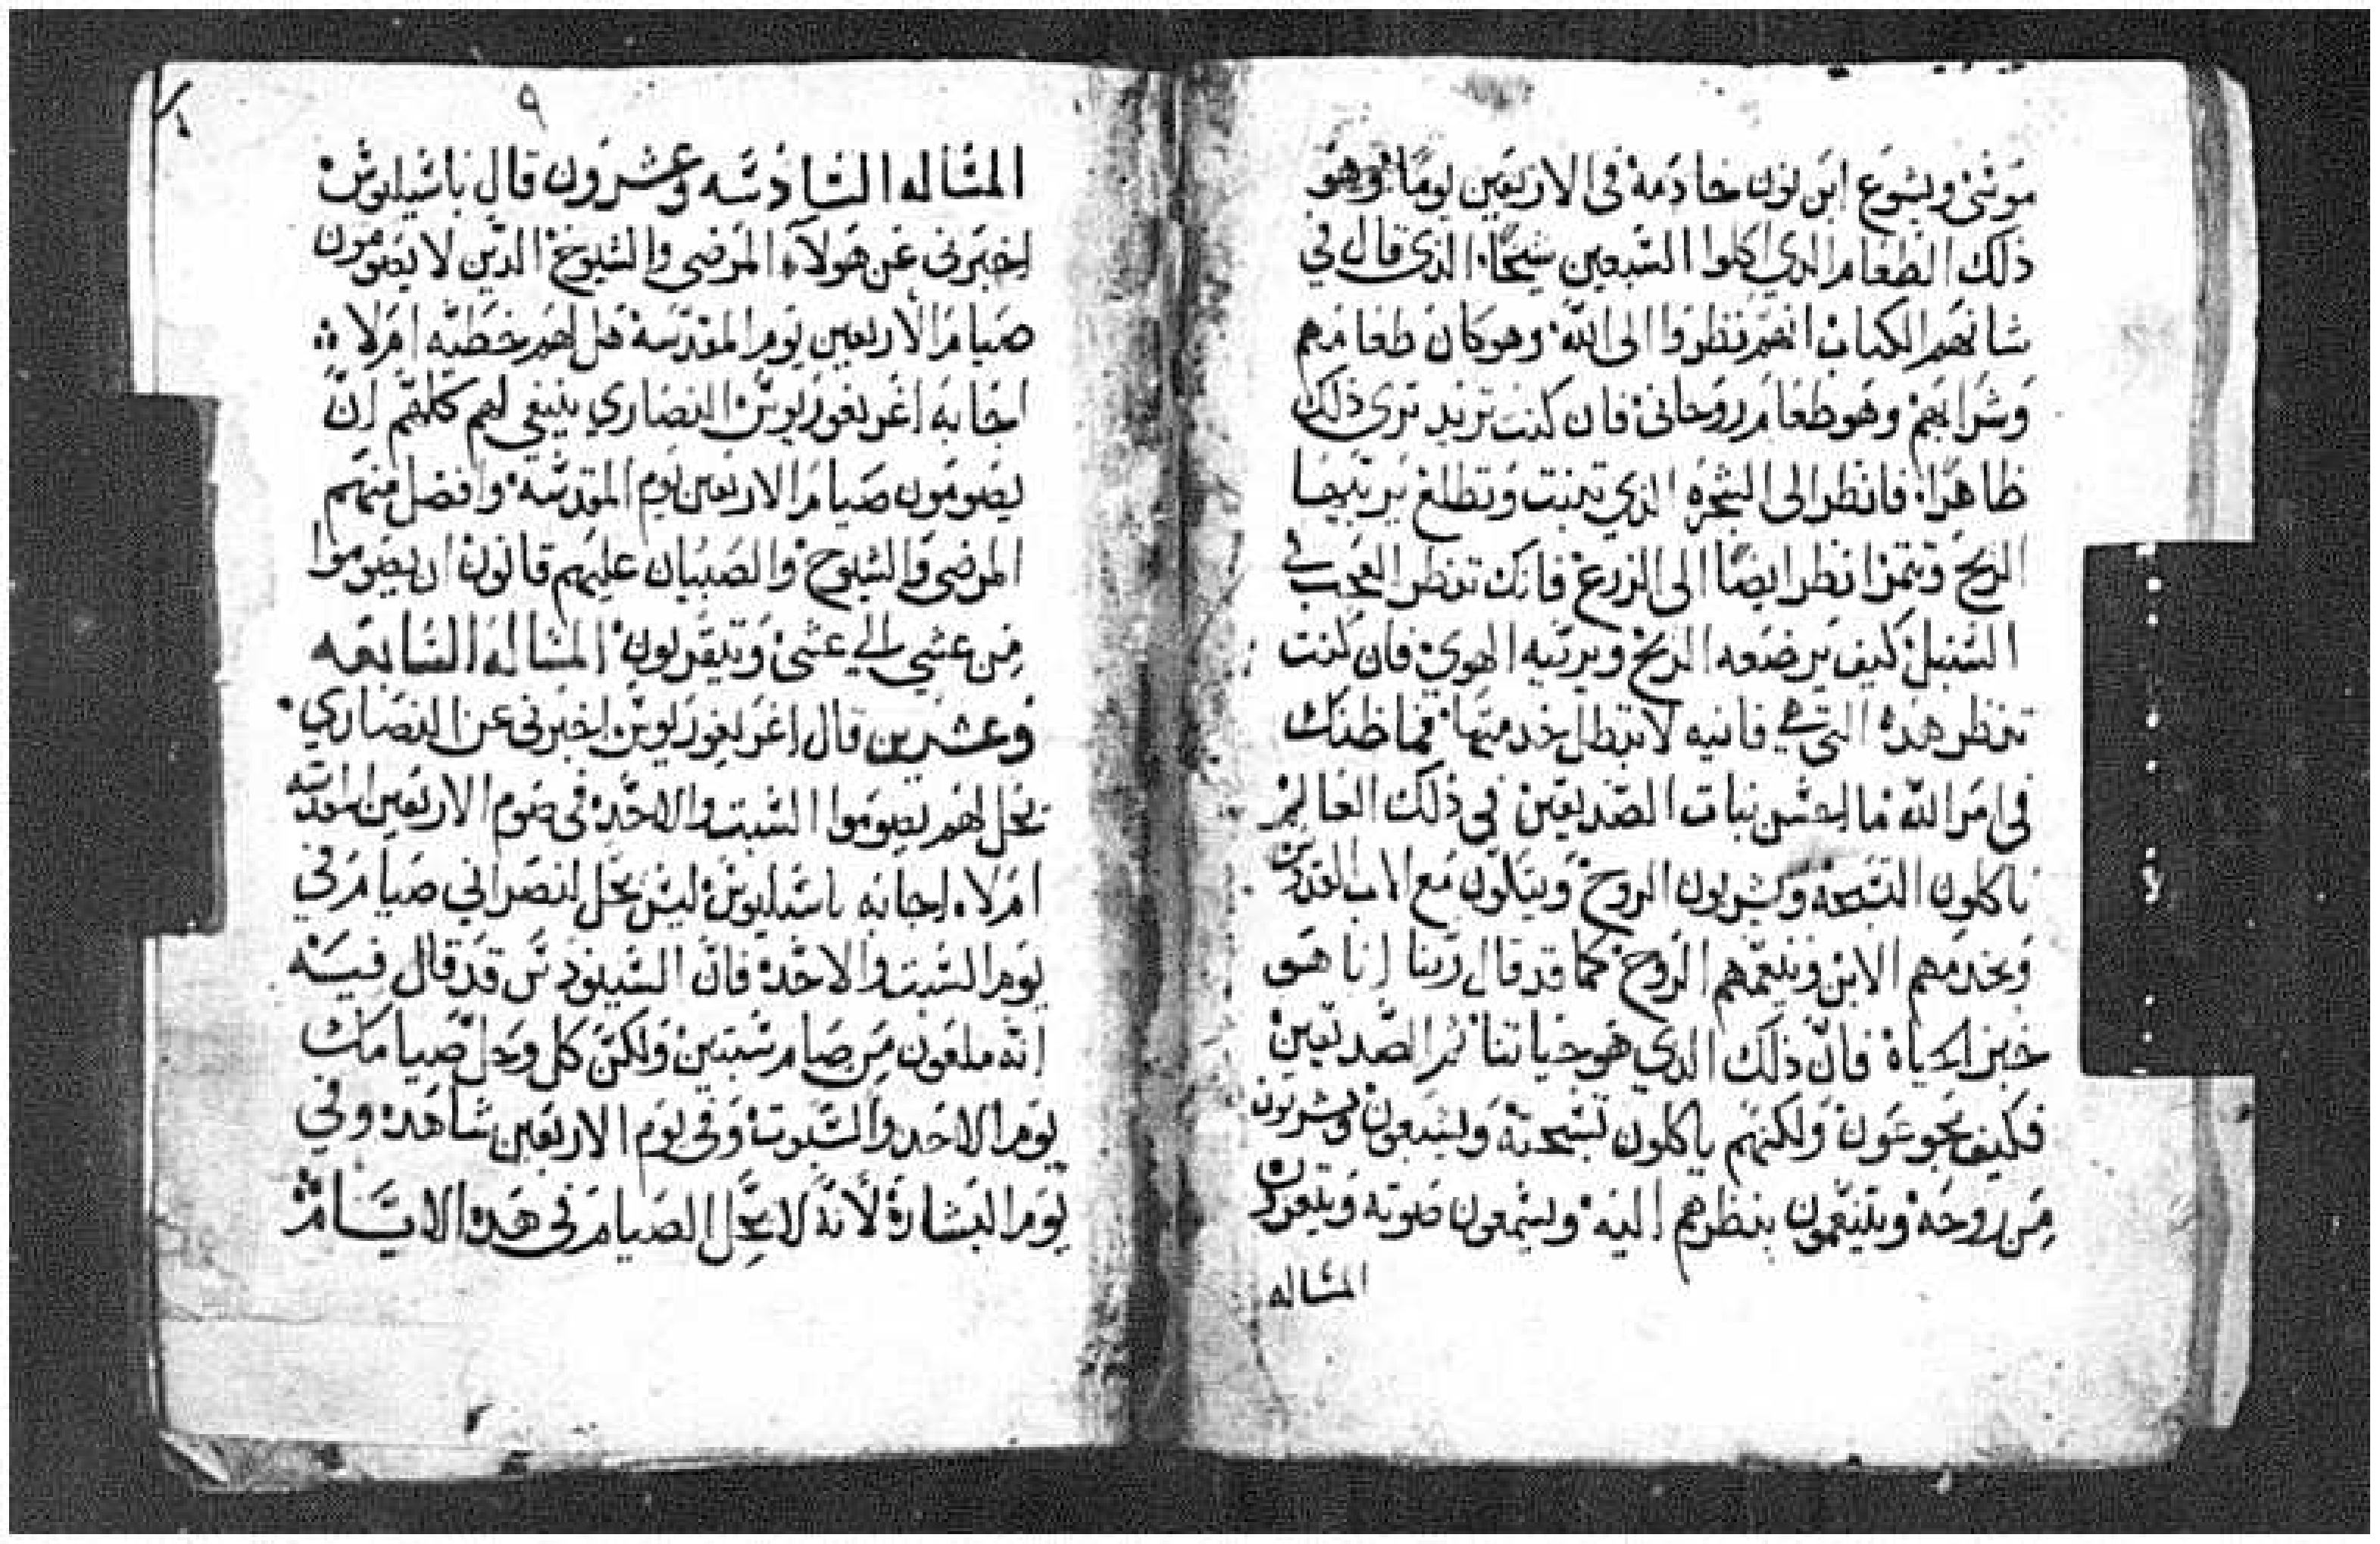 موسى ويشوع ابن نون خادمه في الاربعين يوما وهو
ذلك الطعام الذي اكلوا السبعين شيخا الذي قال في
شانهم الكتاب انهم نظروا الى الله وهو كان طعامهم
وشرابهم وهو طعام روحاني فان كنت تريد ترى ذلك
ظاهرا فانظر الى الشجره الذي تنبت وتطلع يربيها
الريح وتثمر انظر ايضا الى الزرع فانك تنظر العجب في
السنبل كيف يرضعه الريح ويربيه الهوى فان كنت
تنظر هذه التي هي فانيه لا تبطل خدمتها فما ظنك
في امر الله ما احسن نبات الصديقين في ذلك العالم
ياكلون التسبحه ويشربون الروح ويتكلون مع الاب القدس
ويخدمهم الابن وينعمهم الروح كما قد قال ربنا انا هو
خبز الحياه فان ذلك الذي هو حياتنا ثم الصديقين
فكيف يجوعون ولكنهم ياكلون تسبحته ويشبعون ويشربون
من روحه ويتنعمون بنظرهم اليه ويسمعون صوته
المساله
٩
المساله السادسه وعشرون قال باسيليوس
اخبرني عن هولاء المرضى والشيوخ الذين لا يصومون
صيام الاربعين يوم المقدسه هل لهم خطيه ام لا
اجابه اغريغوريوس النصاري ينبغي لهم كلهم ان
يصومون صيام الاربعين يوم المقدسه وافضل منهم
المرضى والشيوخ والصبيان عليهم قانون ان يصوموا
من عشي الى عشى ويتقربون المساله السابعه
وعشرين قال اغريغوريوس اخبرني عن النصاري
يحل لهم يصوموا السبت والاحد في صوم الاربعين المقدسه
ام لا اجابه باسيليوس ليس يحل لنصراني صيام في
يوم السبت والاحد فان السينودس قد قال فيه
انه ملعون من صام سبتين ولكن كل وحل صيامك
يوم الاحد والسبوت وفي يوم الاربعين شاهد وفي
يوم البشاره لانه لا يحل الصيام في هده الايام